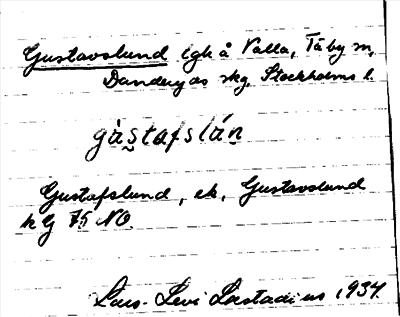 Gustavslund lgh å Valla, Täby sn,
Danderyds skg, Stockholms l.
gùstafslán
Gustafslund, ek, Gustavslund
h G 75 NO.
Lars-Levi Læstadius 1934.